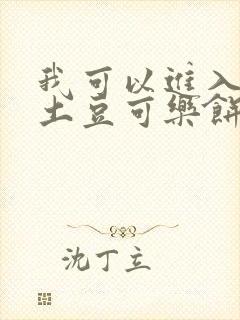 我可以進入
土豆可樂餅
沈丁立